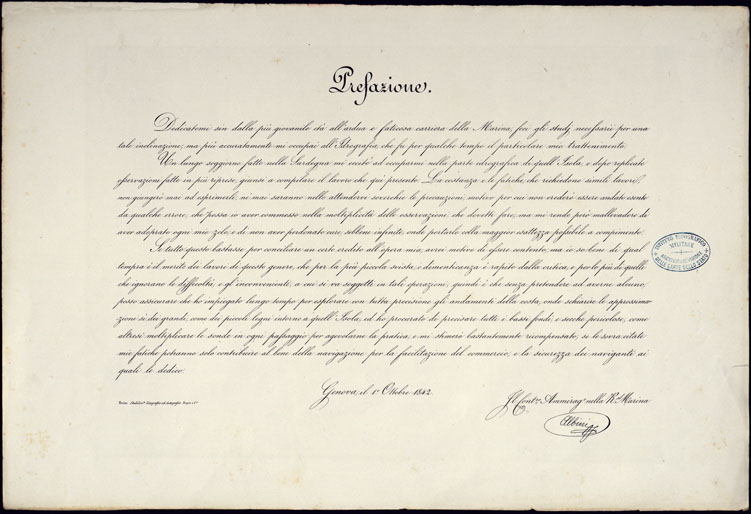 Prefazione.
Dedicatomi sin dalla più giovanile età all'ardua e faticosa carriera della Marina, feci gli studj necessarii per una
tale inclinazione, ma più accuratamente mi occupai all'Idrografia, che fu per qualche tempo il particolare mio trattenimento.
Un lungo soggiorno fatto nella Sardegna mi eccitò ad occuparmi nella parte idrografica di quell'Isola, e dopo replicate
osservazioni fatte in più riprese, giunsi a compilare il lavoro che quì presento. La costanza e le fatiche, che richiedono simili lavori,
non giungerei mai ad esprimerle, nè mai saranno nelle attendere soverchie le precauzioni, motivo per cui non crederei essere andato esente
da qualche errore, che possa io aver commesso nella moltiplicità delle osservazioni, che dovetti fare, ma mi rendo però mallevadore di
aver adoprato ogni mio zelo, e di non aver perdonato cure, sebbene infinite, onde portarlo colla maggior esattezza possibile a compimento.
Se tutto questo bastasse per conciliare un certo credito all'opera mia, avrei motivo di essere contento, ma io so bene di qual
tempra è il merito dei lavori di questo genere, che per la più piccola svista, e dimenticanza è rapito dalla critica, e per lo più di quelli
che ignorano le difficoltà, e gl'inconvenienti, a cui si va soggetti in tale operazioni, quindi è che senza pretendere ad averne alcuno,
posso assicurare che ho impiegato lungo tempo per esplorare con tutta precisione gli andamenti della costa, onde schiarire le approssima-
zioni sì dei grandi, come dei piccoli legni intorno a quell'Isola, ed ho procurato de precisare tutti i bassi fondi, e secche pericolose, come
altresì moltiplicare le sonde in ogni passaggio per agevolarne la pratica, e mi stimerò bastantemente ricompensato, se le sovra citate
mie fatiche potranno solo contribuire al bene della navigazione per la facilitazione del commercio, e la sicurezza dei naviganti ai
quali le dedico.
Genova, il 1º Ottobre 1842.
Il Contr. Ammirag. nella Rª Marina
Albini
ISTITUTO TOPOGRAFICO
MILITARE